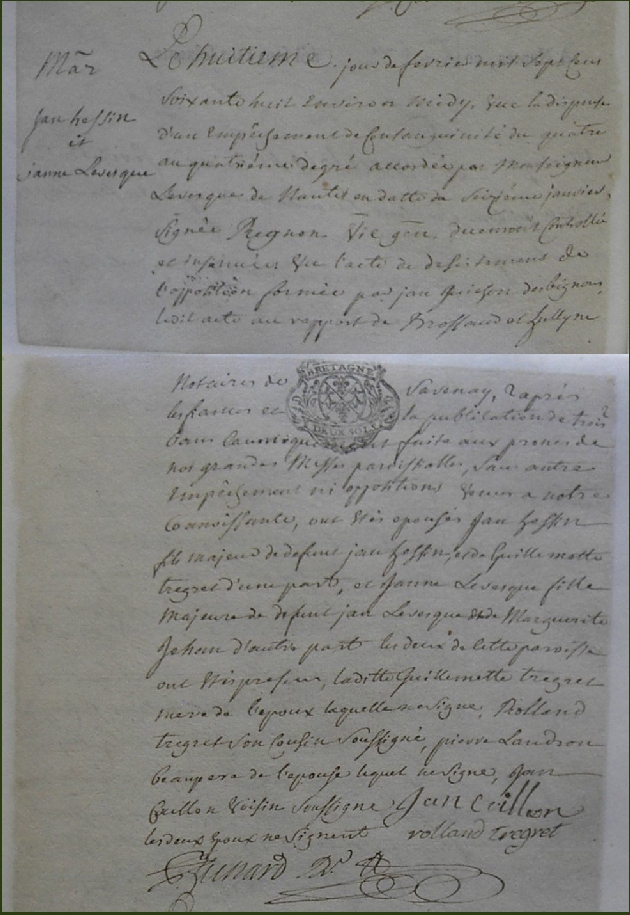 Mar
jan hossin
et
janne Levesque
Le huitieme jour de fevrier mil sept cens
soixante huit environ midy, Vue la dispense
d'un Empêchement de Consanguinité du quatre
au quatrième degré accordée par Monseigneur
Levesque de Nantes en datte du seizieme janvier,
signée Regnon Vic gen. duement Controllée
et insinuée, Vue l'acte de desistement de
l'oppotition formée par jan
ledit acte au rapport de Brossaud et
Notaires de Savenay, & après
les fiances et la publication de trois
bans canoniquement faite aux prones de
nos grandes Messes paroissialles, sans autre
Empêchement ni oppotitions venus a notre
Connoissance, ont étés epousés Jan hossin
fils majeur de defunt jan hossin, et de Guillemette
tregret d'une part, et Janne Levesque fille
majeure de defunt jan Levesque et de Marguerite
Johan d'autre part les deux de cette paroisse
ont étés presens, laditte Guillemette tregret
mere de l'epoux laquelle ne signe, Rolland
tregret son Cousin soussigné, pierre Landron
beaupere de l'epouse lequel ne signe, Jan
Cuillon Voisin soussigne Jan Cuillon
les deux Epoux ne signent rolland tregret
BRETAGNE
DEUX SOLS